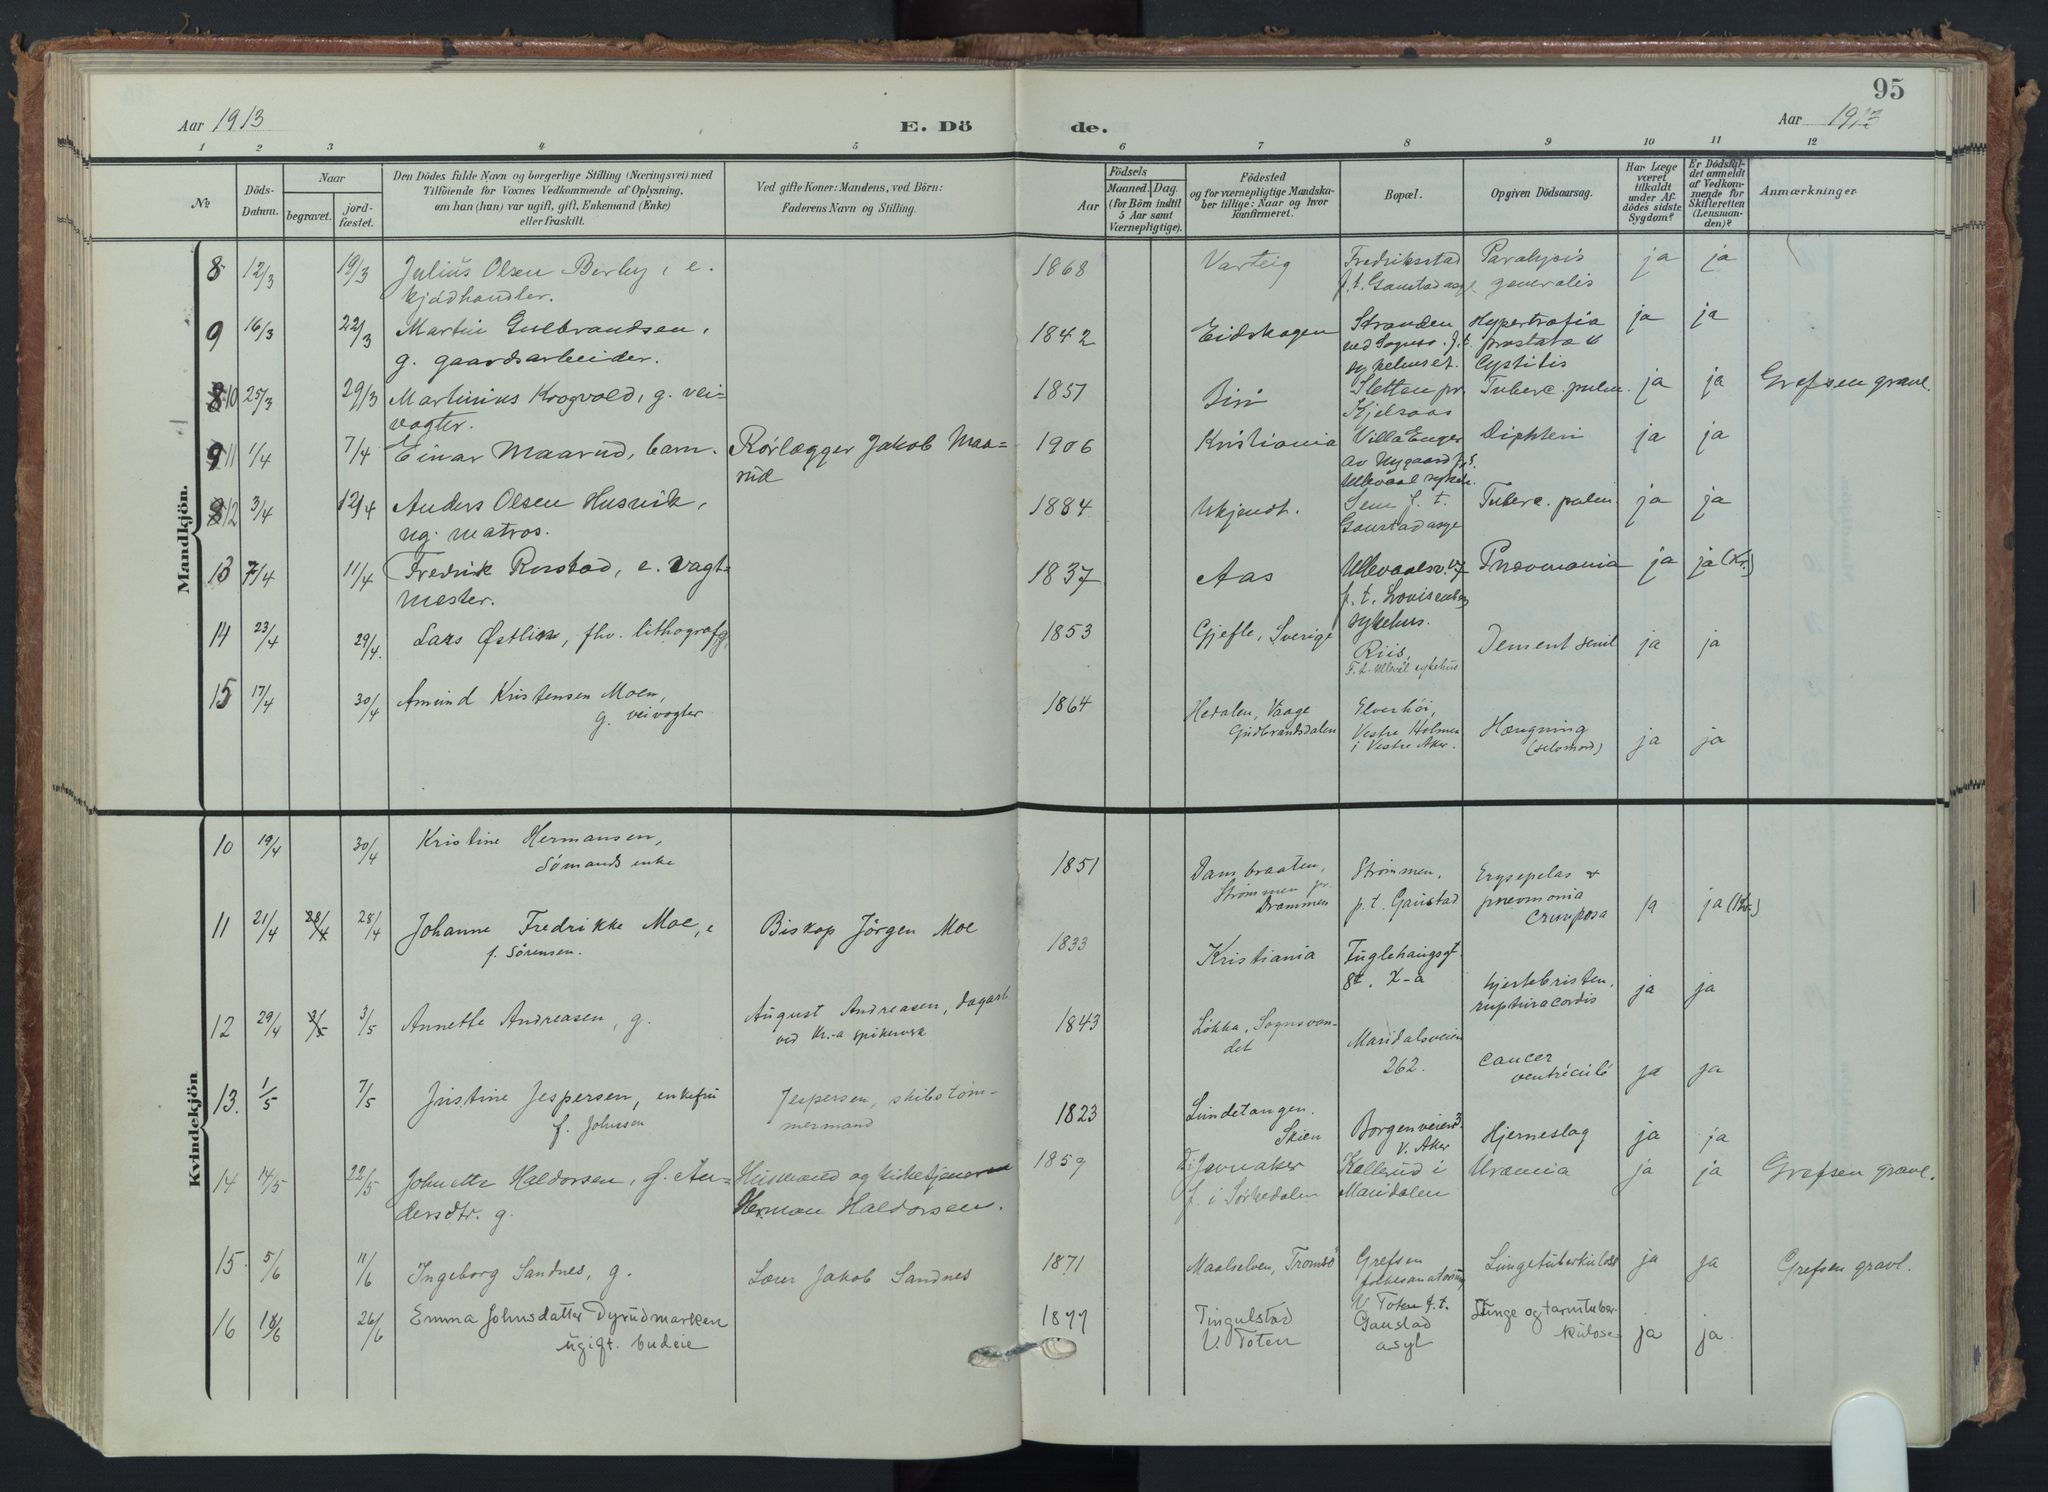 95
Aar 1913
E. Döde.
Aar 1913
1 2 3 4 5 6 7 8 9 10 11 12
№
Döds-Datum.
Naar
begravet.
jord-fæstet.
Den Dödes fulde Navn og borgerlige Stilling (Næringsvei) med
Tilföiende for Voxnes Vedkommende af Oplysning,
om han (hun) var ugift, gift, Enkemand (Enke)
eller fraskilt.
Ved gifte Koner: Mandens, ved Börn:
Faderens Navn og Stilling.
Födsels
Aar
Maaned. Dag.
(for Börn indtil
5 Aar samt
Værnepligtige).
Födested
og for værnepligtige Mandska-
ber tillige: Naar og hvor
konfirmeret.
Bopæl.
Opgiven Dödsaarsag.
Har Læge
været
tilkaldt
under Af-
dödes sidste
Sygdom?
Er Dödsfal-
det anmeldt
af Vedkom-
mende for
Skifteretten
(Lensman-
den)?
Anmærkninger
Mandkjön.
8 12/3 19/3 Julius Olsen Berby, e. 1868 Varteig Fredriksstad Paralysis ja ja
kjödhandler. p.t. Gaustad asyl generalis
9 16/3 22/3 Martin Gulbrandsen, 1842 Eidskogen Stranden Hypertrofia ja ja
g. gaardsarbeider. ved Sognsv. p.t. prostata &
sykehuset. Cystitis
10 25/3 29/3 Martinius Krogvold, g. vei- 1857 Biri Sletten pr. Tuberc. pulm. ja ja Grefsen gravl.
vogter. Kjelsaas
11 1/4 7/4 Einar Maarud, barn. Rörlægger Jakob Maa- 1906 Kristiania Villa Enger Diphteri ja ja
rud av Nygaard p.t.
Ullevaal sykeh.
12 3/4 12/4 Anders Olsen Husvik, 1884 Ukjendt. Sem p.t. Tuberc. pulm ja ja
ug. matros. Gaustad asyl
13 7/4 11/4 Fredrik Rustad, e. vagt- 1837 Aas Ullevaalsv. Pneumonia ja ja (Kr.)
mester. p.t. Lovisenberg
sykehus.
14 23/4 29/4. Lars Østlin, fhv. lithograf, g. 1853 Gjefle, Sverige Riis, Dement senil ja ja
F.t. Ullevål sykehus
15 17/4 30/4 Amund Kristensen Moen, 1864 Hedalen, Vaage Elverhöi, Hængning ja ja
g. veivogter Gudbrandsdalen Vestre Holmen (selvmord)
i Vestre Aker.
Kvindekjön
10 19/4 30/4 Kristine Hermansen, 1851 Dansbraaten, Strømmen, Erysipelas &
Sömands enke Strømmen pr. p.t. Gaustad pneumonia
Drammen crouposa ja ja (Kr.)
11 21/4 28/4 28/4 Johanne Fredrikke Moe, e Biskop Jörgen Moe 1833 Kristiania Fuglehaugsgt.
f. Sörensen. 8. K-a hjertebristen, ja ja
ruptura cordis
12 29/4 3/5 3/5 Annette Andreasen, g. August Andreasen, dagarb. 1843 Løkka, Sognsvan- Maridalsveien
ved Kr.-a spikerverk det 262. Cancer
ventriculi ja ja
13. 1/5 7/5 Justine Jespersen, enkefru Jespersen, skibstöm- 1823 Lundetangen.
f. Johnsen mermand Skien Borgenveien Hjerneslag ja ja
V. Aker
14 14/5 22/5 Johnette Haldorsen, f. An- Husmand og kirketjener 1859 f. i Jevnaker Kallerud i Uræmia ja ja Grefsen gravl.
dersdtr. g. Herman Haldorsen. f. i Sørkedalen Maridalen
15. 5/6 11/6 Ingeborg Sandnes, g. Lærer Jakob Sandnes 1871 Maalselven, Tromsö Grefsen Lungetuberkulose ja ja Grefsen gravl.
folkesanatorium
16 18/6 26/6 Emma Johnsdatter Dyrudmarken 1877 Tingulstad V. Toten p.t. Lunge og tarmtuber-
ugift. budeie V. Toten Gaustad kulose ja ja.
asyl